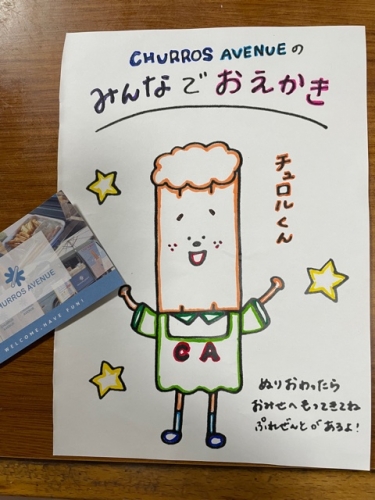 CHURROS AVENUEの
みんなでおえかき
チュロルくん
CHURROS AVENUE
WELCOME, HAVE FUN!
CA
ぬりおわったら
おみせへもってきてね
ぷれぜんとがあるよ!